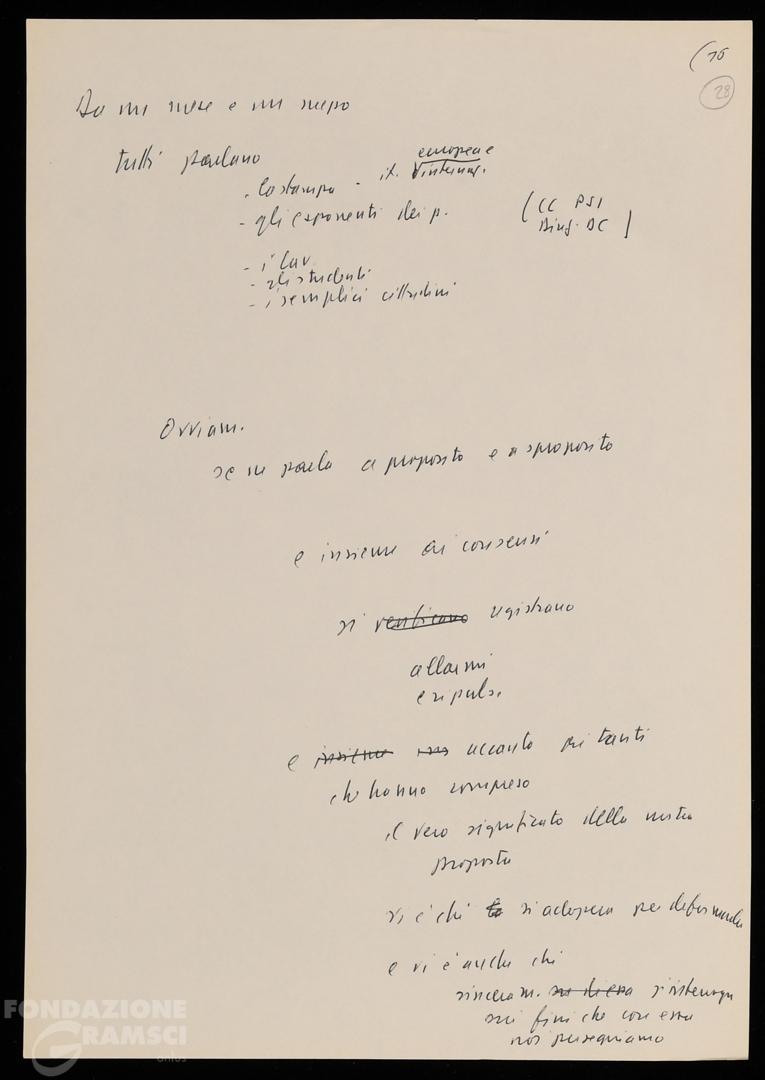 (16
28
Da un mese e un mezzo
tutti parlano
- la stampa - it. europea e internaz.
- gli esponenti dei p. (CC PSI
Direz. DC)
- i lav.
- gli studenti
- i semplici cittadini
Ovviam.
se ne parla a proposito e a sproposito
e insieme ai consensi
si verificano registrano
allarmi
e ripulse
e insieme accanto ai tanti
che hanno compreso
il vero significato della nostra
proposta
vi è chi si adopera per deformarla
e vi è anche chi
sinceram. si interroga
sui fini che con essa
noi perseguiamo
FONDAZIONE
GRAMSCI
onlus